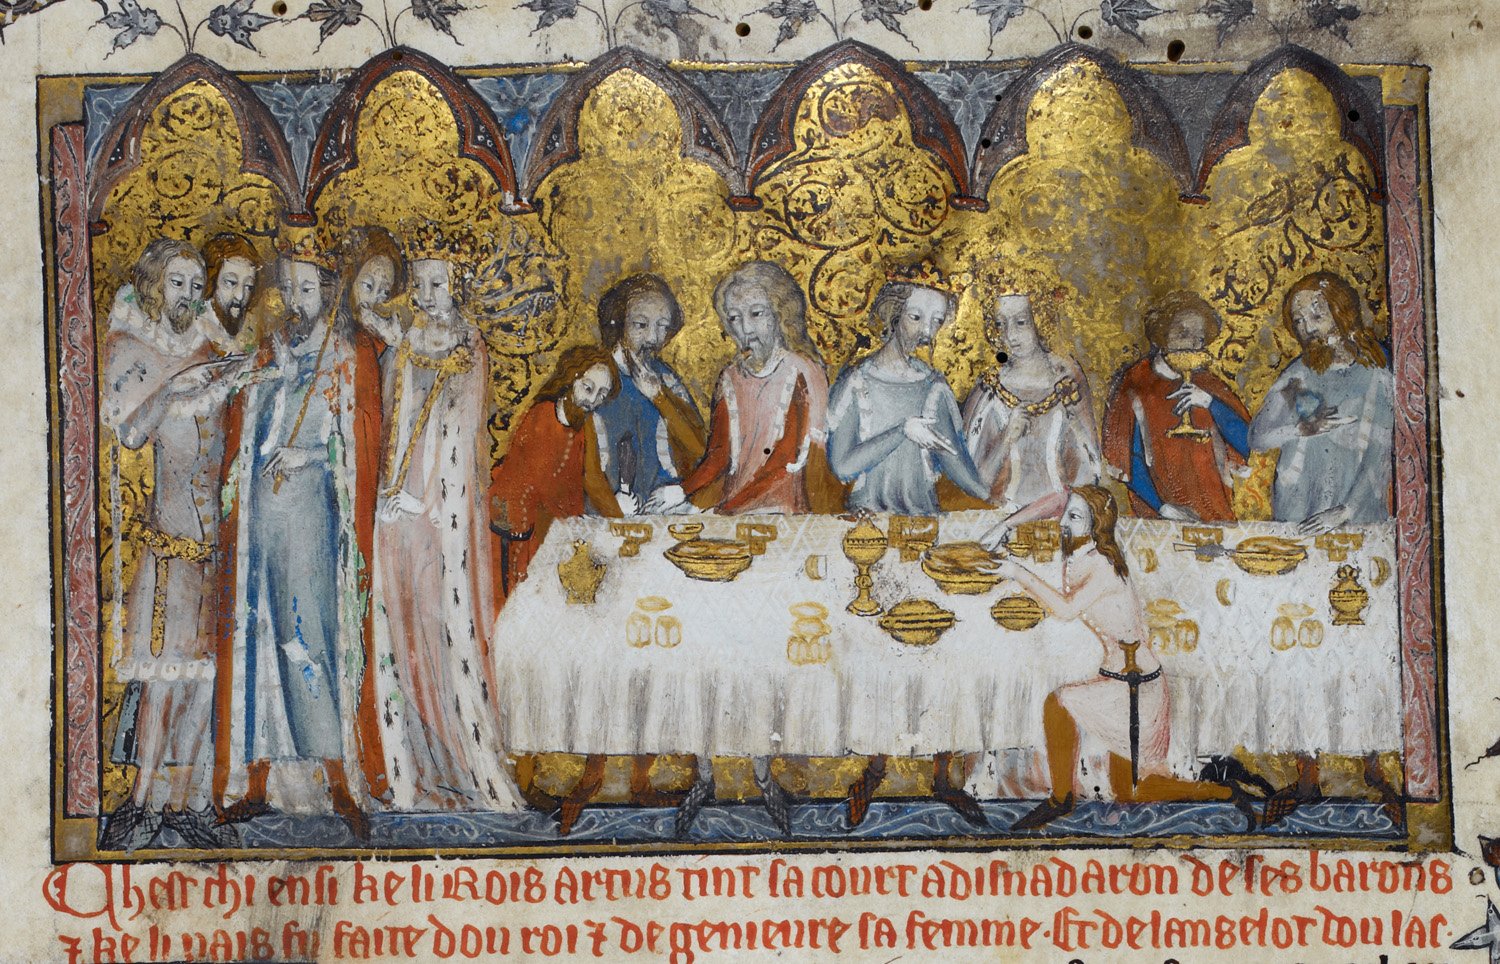 Chest chi ensi ke li Rois artus tint sa court a disnadaron de ses barons
⁊ ke li pais fu faite dou roi ⁊ de genieure sa femme. Et de lanselot dou lac.